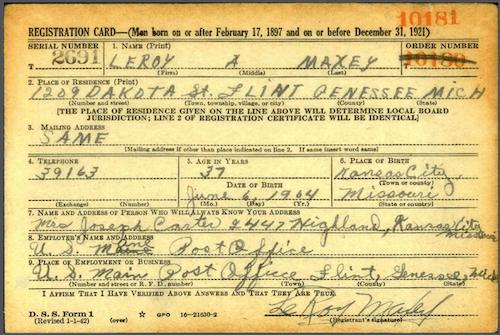 10181
REGISTRATION CARD—(Men born on or after February 17, 1897 and on or before December 31, 1921)
SERIAL NUMBER 1. NAME (Print) ORDER NUMBER
T 2691 LEROY A MAXEY T 10180
(First) (Middle) (Last)
2. PLACE OF RESIDENCE (Print)
1209 DAKOTA St. FLINT GENESSEE MICH
(Number and street) (Town, township, village, or city) (County) (State)
[THE PLACE OF RESIDENCE GIVEN ON THE LINE ABOVE WILL DETERMINE LOCAL BOARD
JURISDICTION; LINE 2 OF REGISTRATION CERTIFICATE WILL BE IDENTICAL]
3. MAILING ADDRESS
SAME
[Mailing address if other than place indicated on line 2. If same insert word same]
4. TELEPHONE 5. AGE IN YEARS 6. PLACE OF BIRTH
39163 37 Kansas City,
DATE OF BIRTH (Town or county)
June 6, 1904 Missouri
(Exchange) (Number) (Mo.) (Day) (Yr.) (State or country)
7. NAME AND ADDRESS OF PERSON WHO WILL ALWAYS KNOW YOUR ADDRESS
Mrs Joseph Carter 2447 Highland, Kansas City
Missouri
8. EMPLOYER'S NAME AND ADDRESS
U. S. Main Post Office
9. PLACE OF EMPLOYMENT OR BUSINESS
U. S. Main Post Office Flint, Genessee, Mich
(Number and street or R. F. D. number) (Town) (County) (State)
I AFFIRM THAT I HAVE VERIFIED ABOVE ANSWERS AND THAT THEY ARE TRUE.
D. S. S. Form 1
(Revised 1-1-42) (over) ☆ GPO 16-21630-2 LeRoy Maxey
(Registrant's signature)